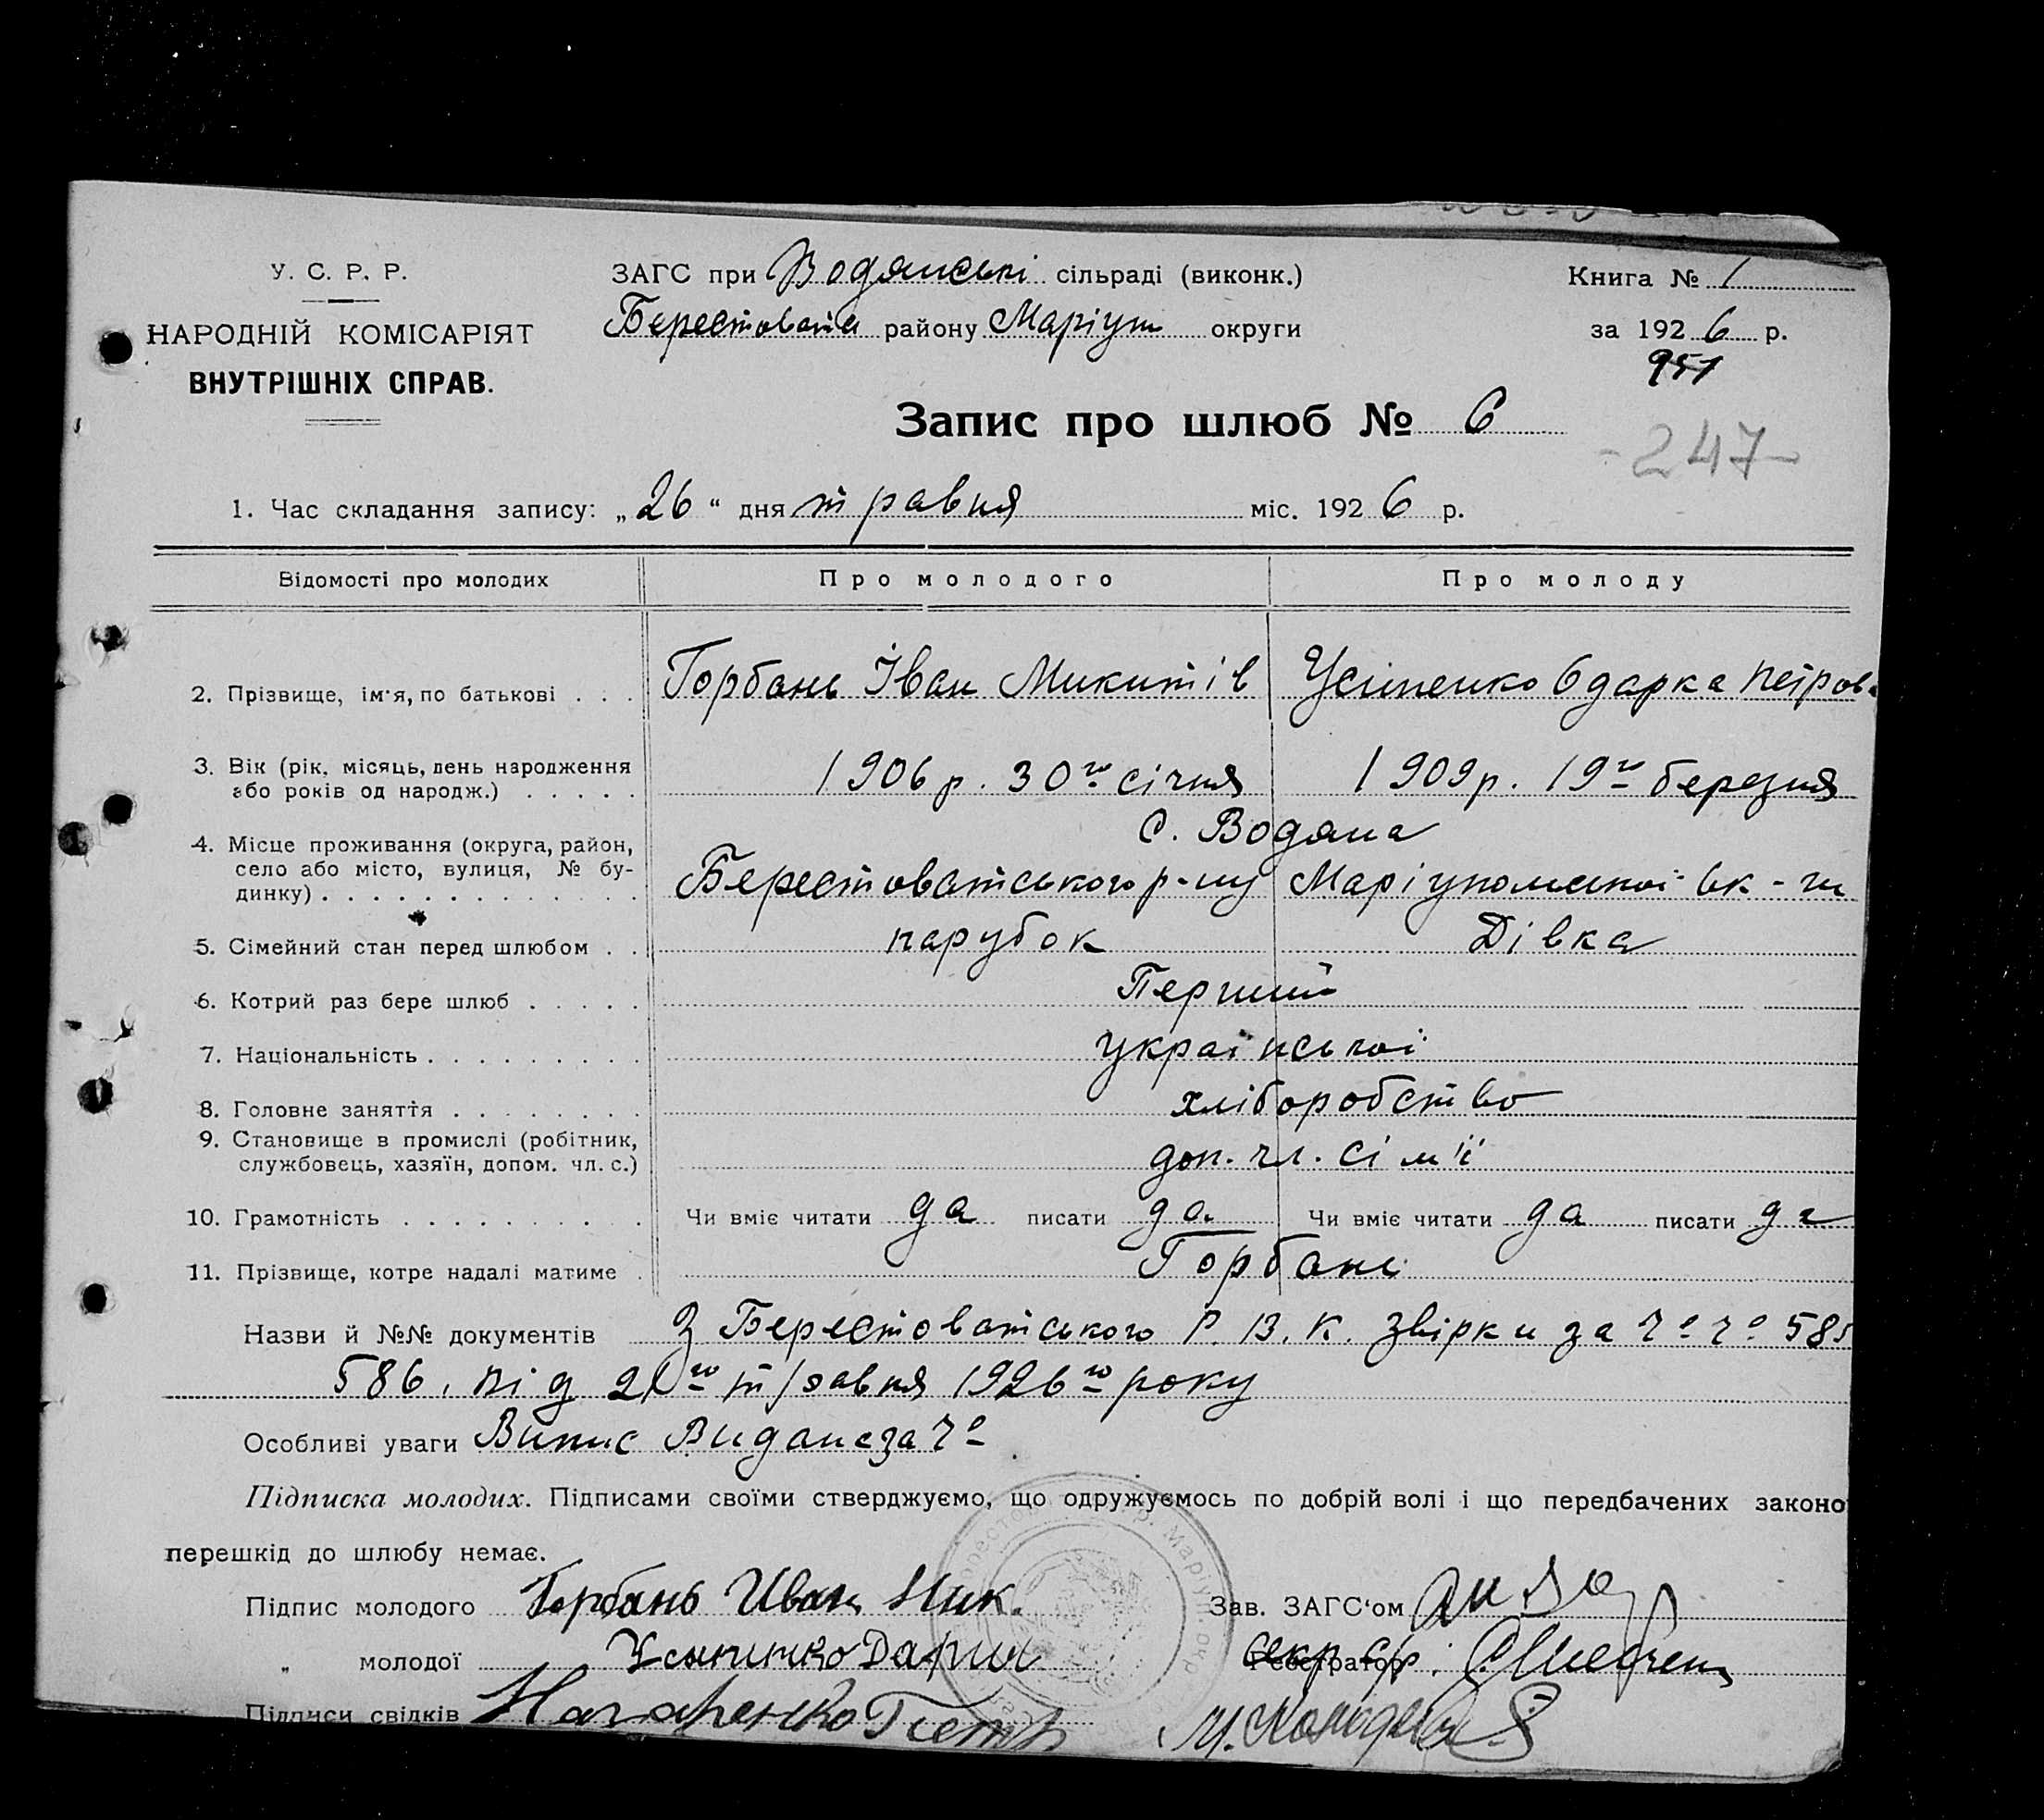 У. С. Р. Р.
НАРОДНІЙ КОМІСАРІЯТ
ВНУТРІШНІХ СПРАВ.
ЗАГС при Водянські сільраді (виконк.)
Берестовата району Маріуп округи
Книга № 1
за 1926 р.
951
Запис про шлюб № 6
-247-
1. Час складання запису: „26“ дня травня міс. 1926 р.
Відомості про молодих Про молодого Про молоду
2. Прізвище, ім'я, по батькові . . . Горбань Іван Микитів Усіпенко Одарка Петров
3. Вік (рік, місяць, день народження
або років од народж.) . . . . . 1906 р. 30го січня 1909 р. 19го березня
с. Водяна
4. Місце проживання (округа, район,
село або місто, вулиця, № бу-
динку) . . . . . . . . . . . . . Берестоватського р-ну Маріупольської ок-ги
5. Сімейний стан перед шлюбом . . парубок Дівка
6. Котрий раз бере шлюб . . . . . Перший
7. Національність . . . . . . . . української
8. Головне заняття . . . . . . . . хліборобство
9. Становище в промислі (робітник,
службовець, хазяїн, допом. чл. с.) доп. чл. сім'ї
10. Грамотність . . . . . . . . . . Чи вміє читати да писати да Чи вміє читати да писати да
11. Прізвище, котре надалі матиме . Горбань
Назви й №№ документів З Берестоватського Р. В. К. звірки за Чо Чо 585
586, від 21го травня 1926го року
Особливі уваги Випис Видане за Чо
Підписка молодих. Підписами своїми стверджуємо, що одружуємось по добрій волі і що передбачених законо
перешкід до шлюбу немає.
Підпис молодого Горбань Иван Ник.
Зав. ЗАГС'ом
„ молодої Усыпенко Дария
Реєстратор секр с/р.
Підписи свідків Назаренко Петр